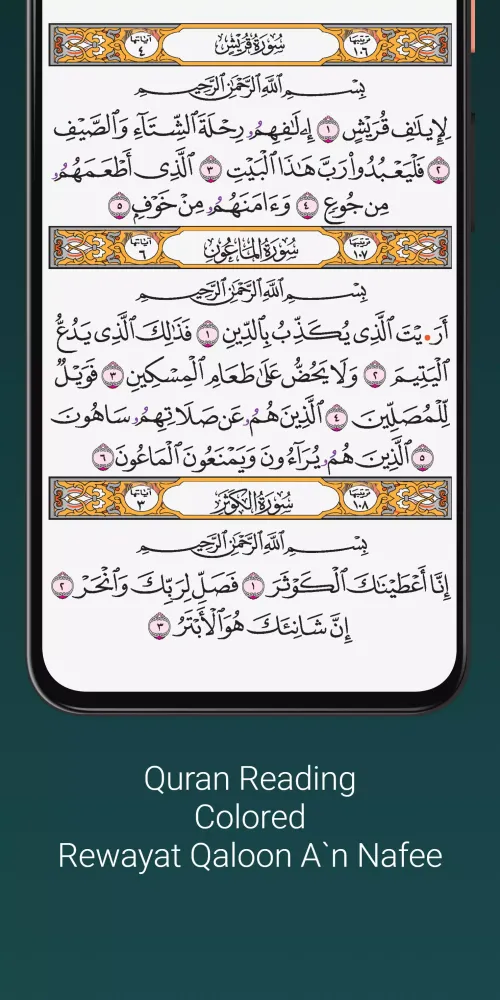 آياتها ٤ سُورَةُ قُرَيْشٍ ترتيبها ١٠٦
بِسْمِ اللَّهِ الرَّحْمَٰنِ الرَّحِيمِ
لِإِيلَٰفِ قُرَيْشٍ ١ إِۦلَٰفِهِمُۥ رِحْلَةَ اَلشِّتَآءِ وَالصَّيْفِ
٢ فَلْيَعْبُدُواْ رَبَّ هَٰذَا اَلْبَيْتِ ٣ اَلَّذِى أَطْعَمَهُمُۥ
مِن جُوعٍ ٤ وَءَامَنَهُمُۥ مِنْ خَوْفٍ ٥
آياتها ٦ سُورَةُ الْمَاعُونِ ترتيبها ١٠٧
بِسْمِ اللَّهِ الرَّحْمَٰنِ الرَّحِيمِ
أَرَ•يْتَ اَلَّذِى يُكَذِّبُ بِالدِّينِ ١ فَذَٰلِكَ اَلَّذِى يَدُعُّ
اُلْيَتِيمَ ٢ وَلَا يَحُضُّ عَلَىٰ طَعَامِ اِلْمِسْكِينِ ٣ فَوَيْلٌ
لِّلْمُصَلِّينَ ٤ اَلَّذِينَ هُمُۥ عَن صَلَاتِهِمُۥ سَاهُونَ
٥ اَلَّذِينَ هُمُۥ يُرَآءُونَ وَيَمْنَعُونَ اَلْمَاعُونَ ٦
آياتها ٣ سُورَةُ الْكَوْثَرِ ترتيبها ١٠٨
بِسْمِ اللَّهِ الرَّحْمَٰنِ الرَّحِيمِ
إِنَّا أَعْطَيْنَٰكَ اَلْكَوْثَرَ ١ فَصَلِّ لِرَبِّكَ وَانْحَرْ ٢
إِنَّ شَانِئَكَ هُوَ اَلْأَبْتَرُ ٣
Quran Reading
Colored
Rewayat Qaloon A`n Nafee